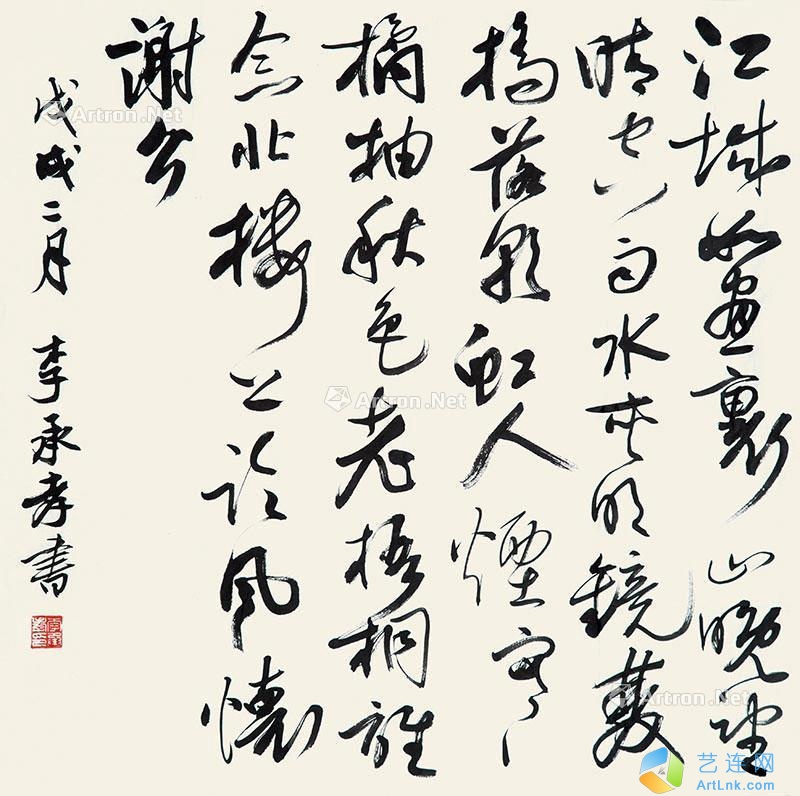 江城如畫裏山晚望
晴空兩水夾明鏡雙
橋落彩虹人煙寒
橘柚秋色老梧桐誰
念北樓上臨風懷
謝公
戊戌二月 李承孝書
Artron.Net
Artron.Net
Artron.Net
Artron.Net
Artron.Net
艺连网
ArtLnk.com